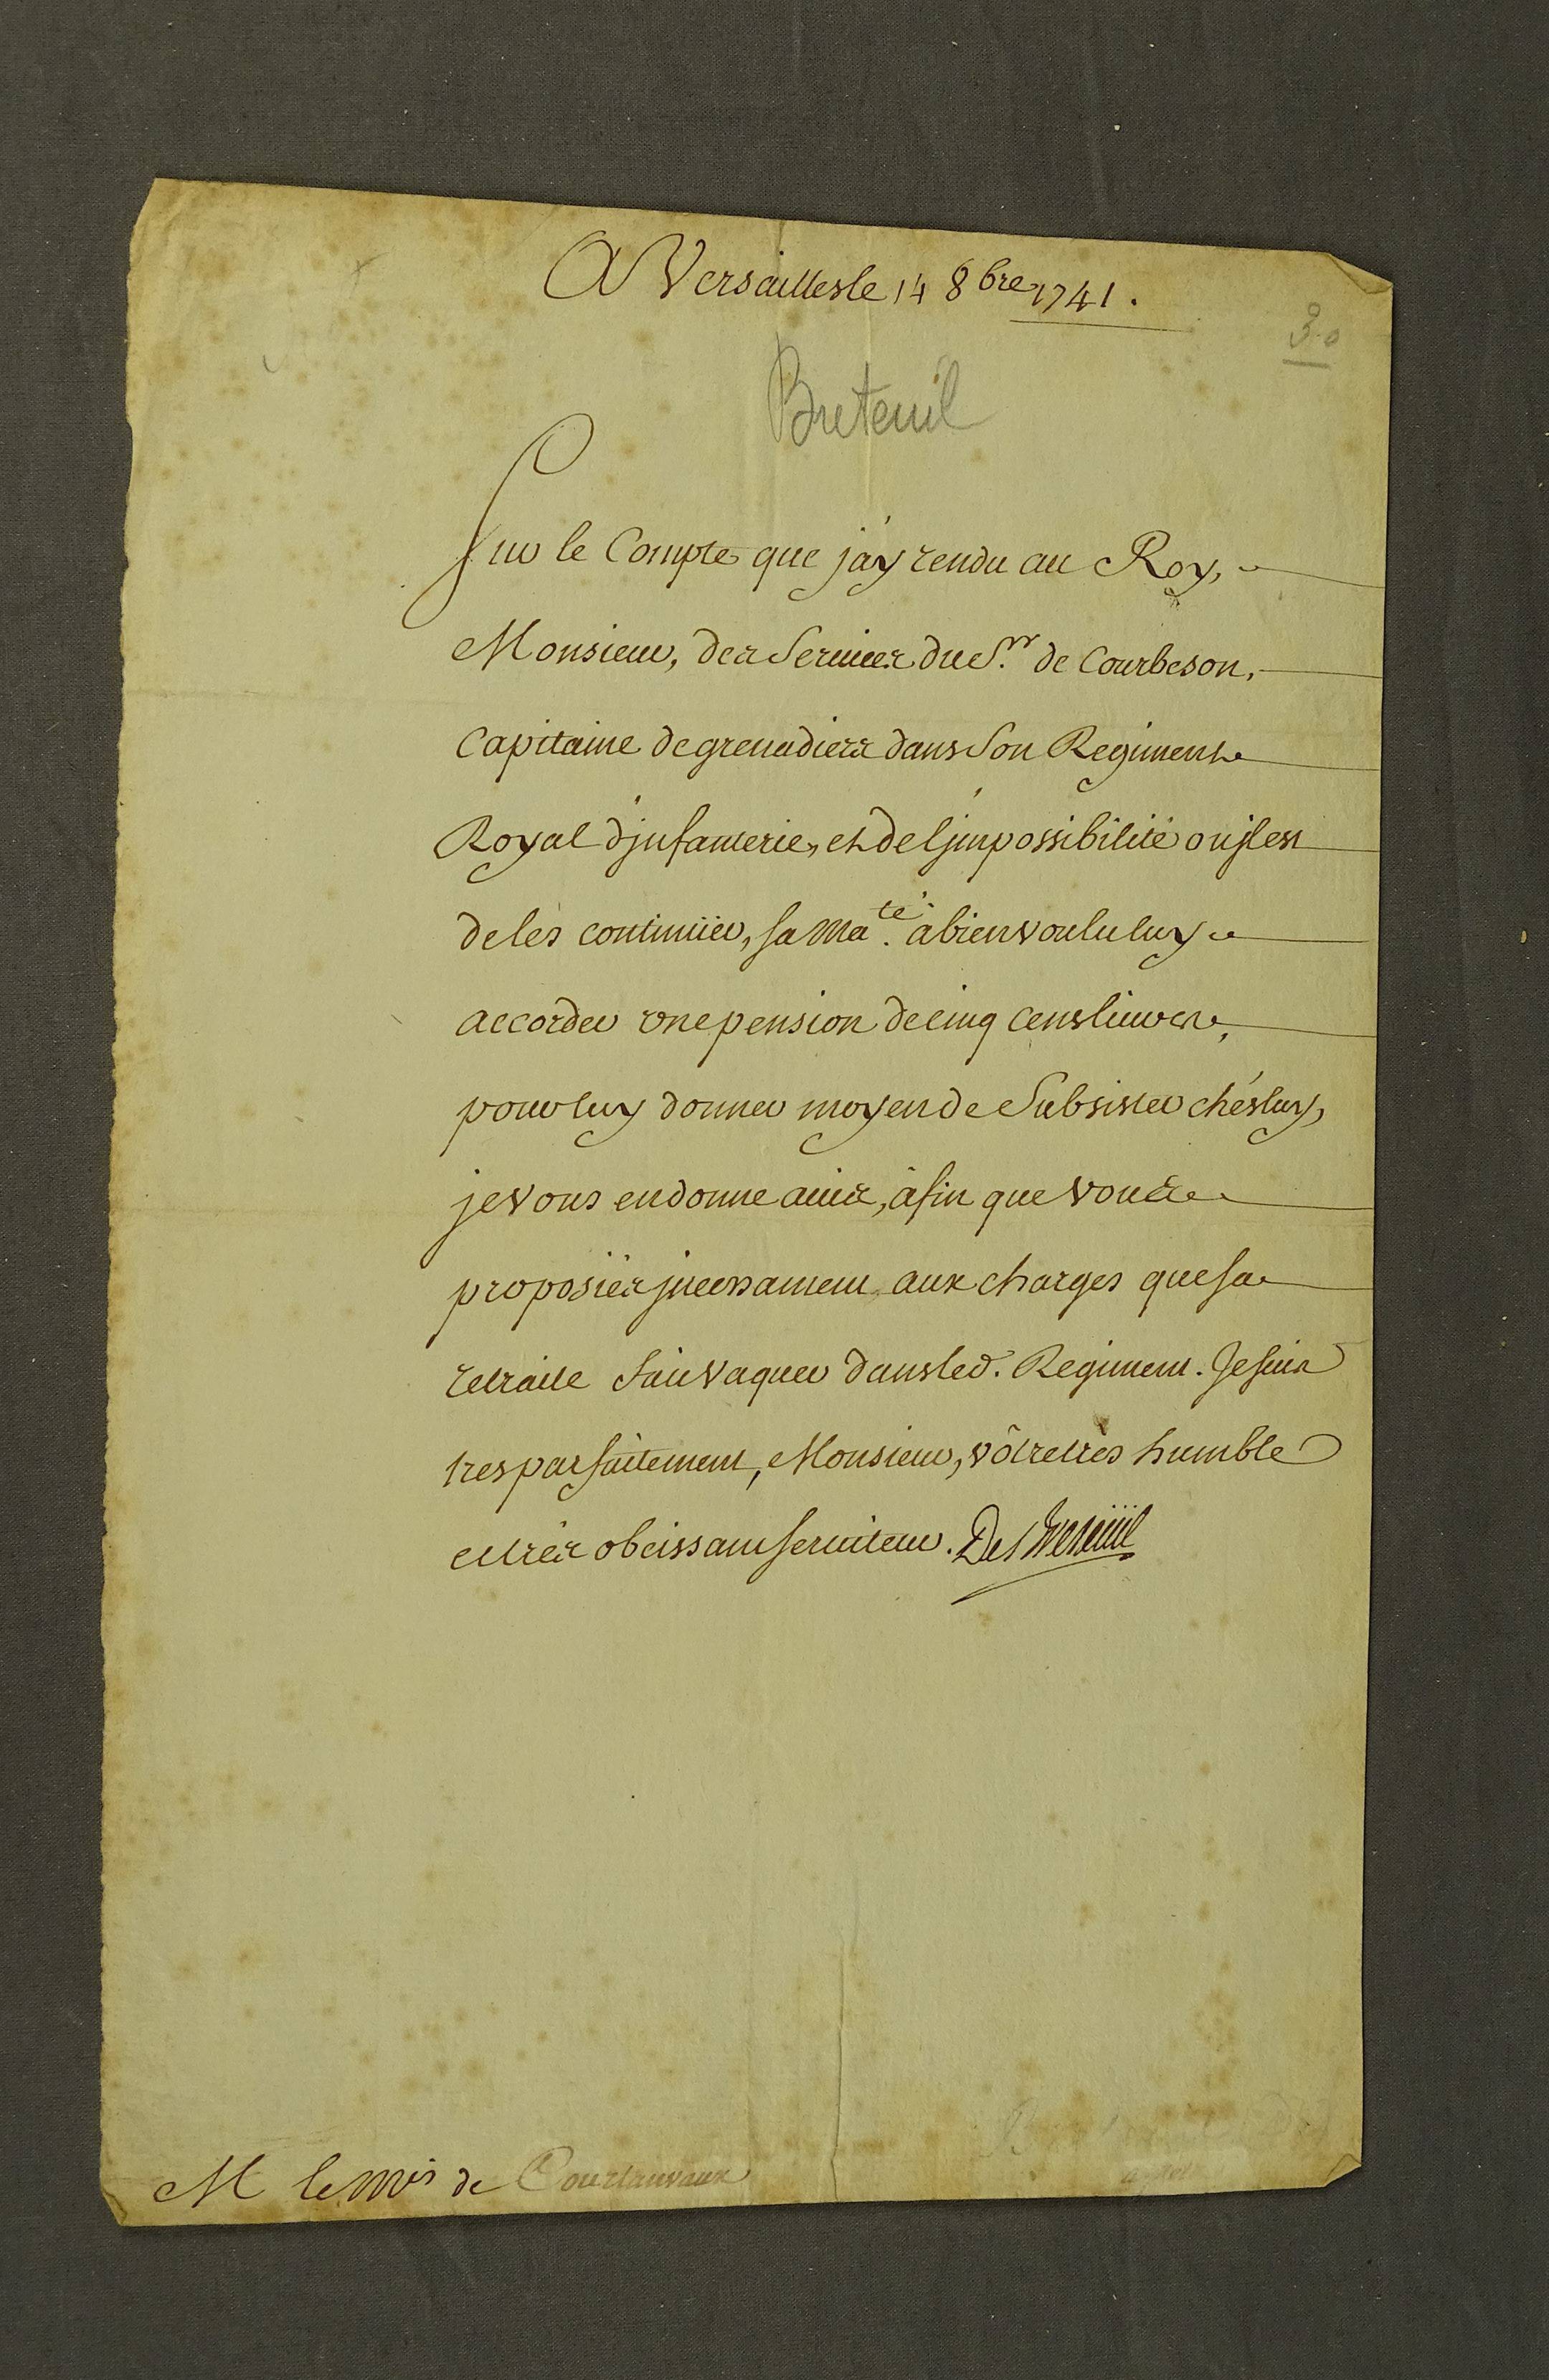 A Versailles le 14 8bre 1741.
30
Breteuil
Sur le Compte que j'ay rendu au Roy,
Monsieur, des Services du S.r de Courbeson,
Capitaine de grenadiers dans son Regiment
Royal d'jnfanterie, et de l'jmpossibilité ou jl est
de les continüer, sa Ma.té a bien voulu luy
accorder vne pension de cinq cens livres,
pour luy donner moyen de Subsister chés luy,
je vous en donne avis, àfin que vous
proposiés jncessament aux charges que sa
retraite fait vaquer dans led. Regiment. Je suis
tres parfaitement, Monsieur, vôtre très humble
et très obeissant serviteur. De Breteüil
M le Mis de Courtanvaux